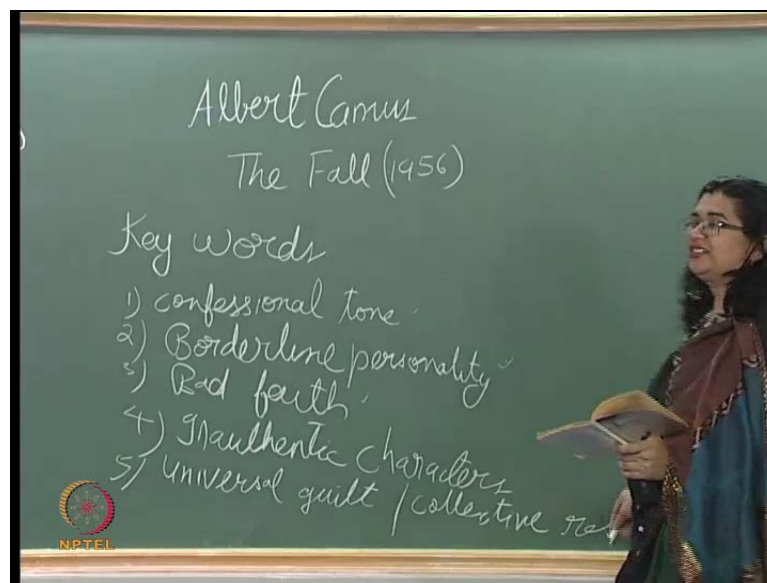 Albert Camus
The Fall (1956)
Key words
1) confessional tone
2) Borderline personality
3) Bad faith
4) Inauthentic characters
5) universal guilt / collective res
NPTEL